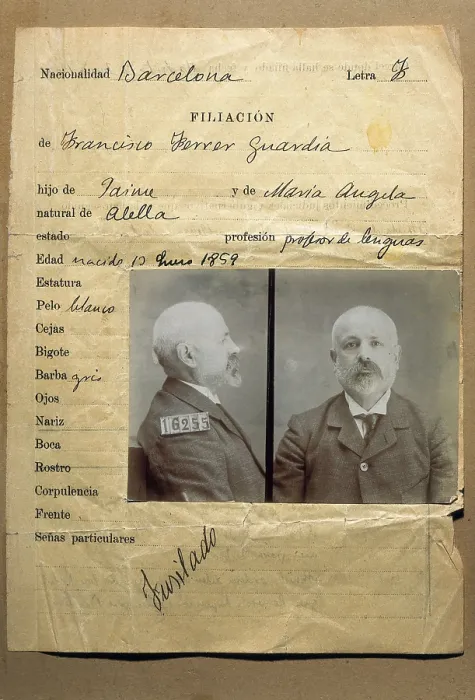 Nacionalidad Barcelona Letra F
FILIACIÓN
de Francisco Ferrer Guardia
hijo de Jaime y de Maria Angela
natural de Alella
estado profesión profesor de lenguas
Edad nacido 10 Enero 1859
Estatura
Pelo blanco
Cejas
Bigote
Barba gris
Ojos
Nariz
Boca
Rostro
Corpulencia
Frente
Señas particulares
16255
Fusilado